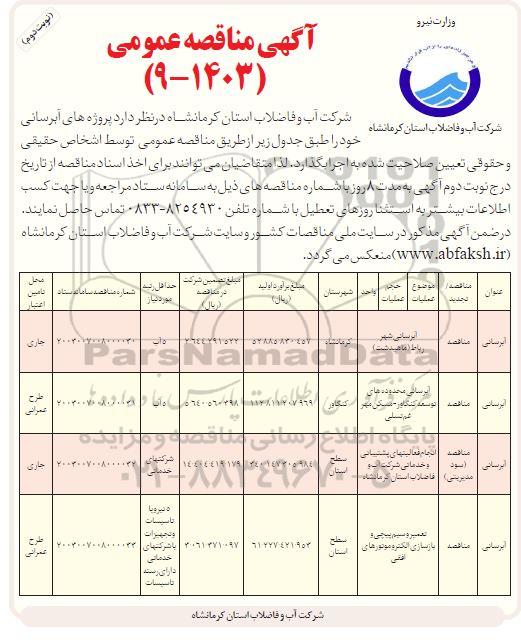 (نوبت دوم)
آگهی مناقصه عمومی
(۹-۱۴۰۳)
وزارت نیرو
شرکت آب و فاضلاب استان کرمانشاه
شرکت آب و فاضلاب استان کرمانشاه درنظر دارد پروژه های آبرسانی
خود را طبق جدول زیر از طریق مناقصه عمومی توسط اشخاص حقیقی
و حقوقی تعیین صلاحیت شده به اجرا بگذارد. لذا متقاضیان می توانند برای اخذ اسناد مناقصه از تاریخ
درج نوبت دوم آگهی به مدت ۸ روز با شماره مناقصه های ذیل به سامانه ستاد مراجعه و یا جهت کسب
اطلاعات بیشتر به استثنا روزهای تعطیل با شماره تلفن ۸۲۵۴۹۳۰-۰۸۳۳ تماس حاصل نمایند.
درضمن آگهی مذکور در سایت ملی مناقصات کشور و سایت شرکت آب و فاضلاب استان کرمانشاه
(www.abfaksh.ir) منعکس می گردد.
عنوان مناقصه/تجدید موضوع عملیات حجم عملیات واحد شهرستان مبلغ برآورد اولیه (ریال) مبلغ تضمین شرکت در مناقصه (ریال) حداقل رتبه مورد نیاز شماره مناقصه سامانه ستاد محل تامین اعتبار
آبرسانی مناقصه آبرسانی شهر رباط (ماهیدشت) کرمانشاه ۵۲۸۸۵۸۳۰۴۵۷ ۲۶۴۴۲۹۱۵۲۲ ۵ آب ۲۰۰۳۰۰۷۰۰۸۰۰۰۰۳۰ جاری
آبرسانی مناقصه آبرسانی محدوده های توسعه کنگاور-مسکن مهر کنگاور ۱۱۲۸۱۱۲۰۷۹۶۹ ۵۶۴۰۵۶۰۳۹۸ ۵ آب ۲۰۰۳۰۰۷۰۰۸۰۰۰۰۳۱ طرح عمرانی
آبرسانی مناقصه (سود مدیریتی) انجام فعالیتهای پشتیبانی و خدماتی شرکت آب و فاضلاب استان کرمانشاه سطح استان ۳۴۰۱۴۷۳۰۵۹۸۴ ۱۴۴۰۴۴۱۹۱۷۹ شرکتهای خدماتی ۲۰۰۳۰۰۷۰۰۸۰۰۰۰۳۲ جاری
آبرسانی مناقصه تعمیر و سیم پیچی و بازسازی الکتروموتورهای افقی سطح استان ۶۱۲۲۷۴۲۱۹۵۳ ۳۰۶۱۳۷۱۰۹۷ ۵ نیرو یا تاسیسات و تجهیزات یا شرکتهای خدماتی دارای رسته تاسیسات ۲۰۰۳۰۰۷۰۰۸۰۰۰۰۳۳ طرح عمرانی
ParsNamadData
پایگاه اطلاع رسانی مناقصه و مزایده
۰۲۱-۸۸۳۴۹۶۷۰-۵
شرکت آب و فاضلاب استان کرمانشاه